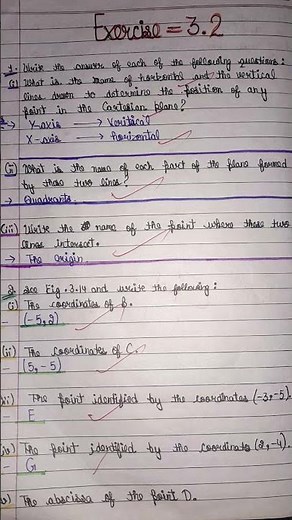 Exercise = 3.2
1. Write the answer of each of the following questions:
(i) What is the name of horizontal and the vertical
lines drawn to determine the position of any
point in the Cartesian plane?
→ Y-axis → Veritical
X-axis → horizontal
(ii) What is the name of each part of the plane formed
by these two lines?
→ Quadrants.
(iii) Write the name of the point where these two
lines intersect.
→ The origin.
2. See Fig. 3.14 and write the following:
(i) The coordinates of B.
- (-5,2)
(ii) The coordinates of C.
- (5,-5)
iii) The point identified by the coordinates (-3,-5).
- E
iv) The point identified by the coordinates (2,-4).
- G
v) The abscissa of the point D.